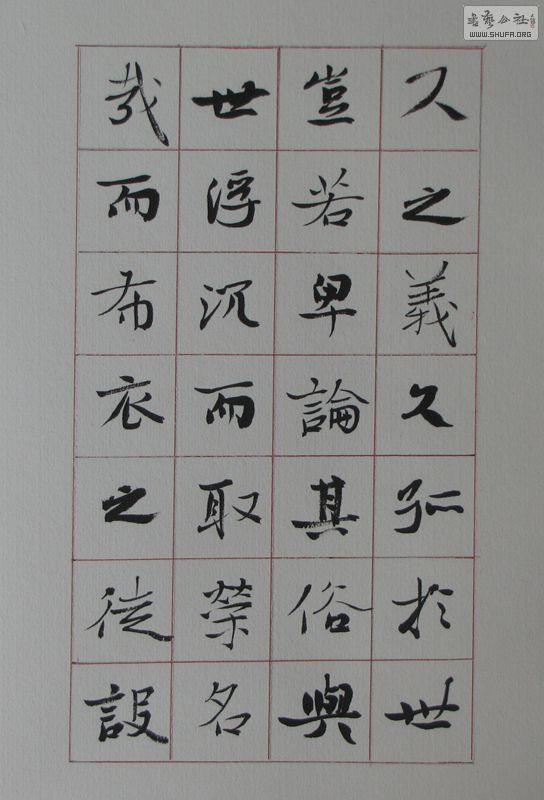 尺之義久孤於世
豈若卑論其俗與
世浮沉而取榮名
哉而布衣之徒設
書藝公社
WWW.SHUFA.ORG